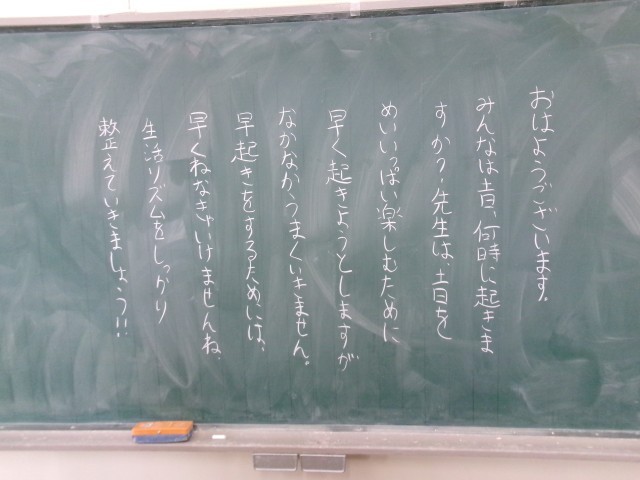 おはようございます。
みんなは土日、何時に起きま
すか？先生は、土日を
めいいっぱい楽しむために
早く起きようとしますが
なかなかうまくいきません。
早起きをするためには、
早くねなきゃいけませんね。
生活リズムをしっかり
整えていきましょう!!